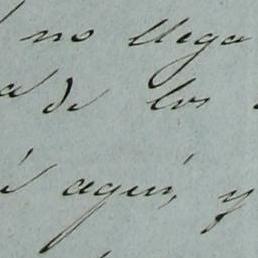 no llega
de los
é aquí, y